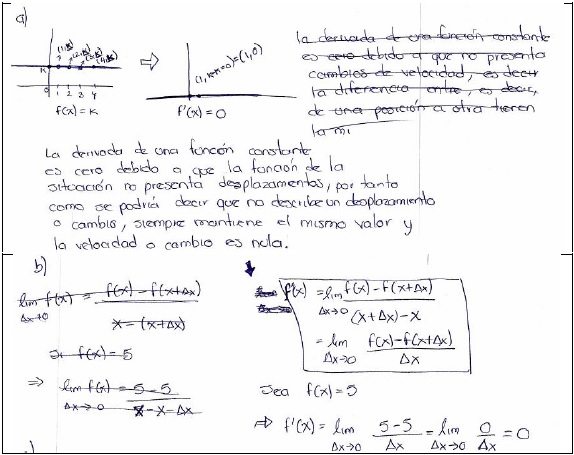 a)
(1,k) (2,k) (3,k) (4,k)
K
0 1 2 3 4
f(x) = K
⇒
(1, k-k=0) = (1,0)
f'(x) = 0
la derivada de una función constante
es cero debido a que no presenta
cambios de velocidad, es decir
la diferencia entre, es decir,
de una posición a otra tienen
la mi
La derivada de una función constante
es cero debido a que la función de la
situación no presenta desplazamentos, por tanto
como se podría decir que no describe un desplazamiento
o cambio, siempre mantiene el mismo valor y
la velocidad o cambio es nula.
b)
lim f(x) = f(x) - f(x+Δx)
Δx→0
x - (x+Δx)
Si f(x) = 5
⇒ lim f(x) = 5 - 5
Δx→0 x - x - Δx
f'(x) = lim f(x) - f(x+Δx)
Δx→0 (x+Δx) - x
= lim f(x) - f(x+Δx)
Δx→0 Δx
Sea f(x) = 5
⇒ f'(x) = lim 5-5 = lim 0 = 0
Δx→0 Δx Δx→0 Δx